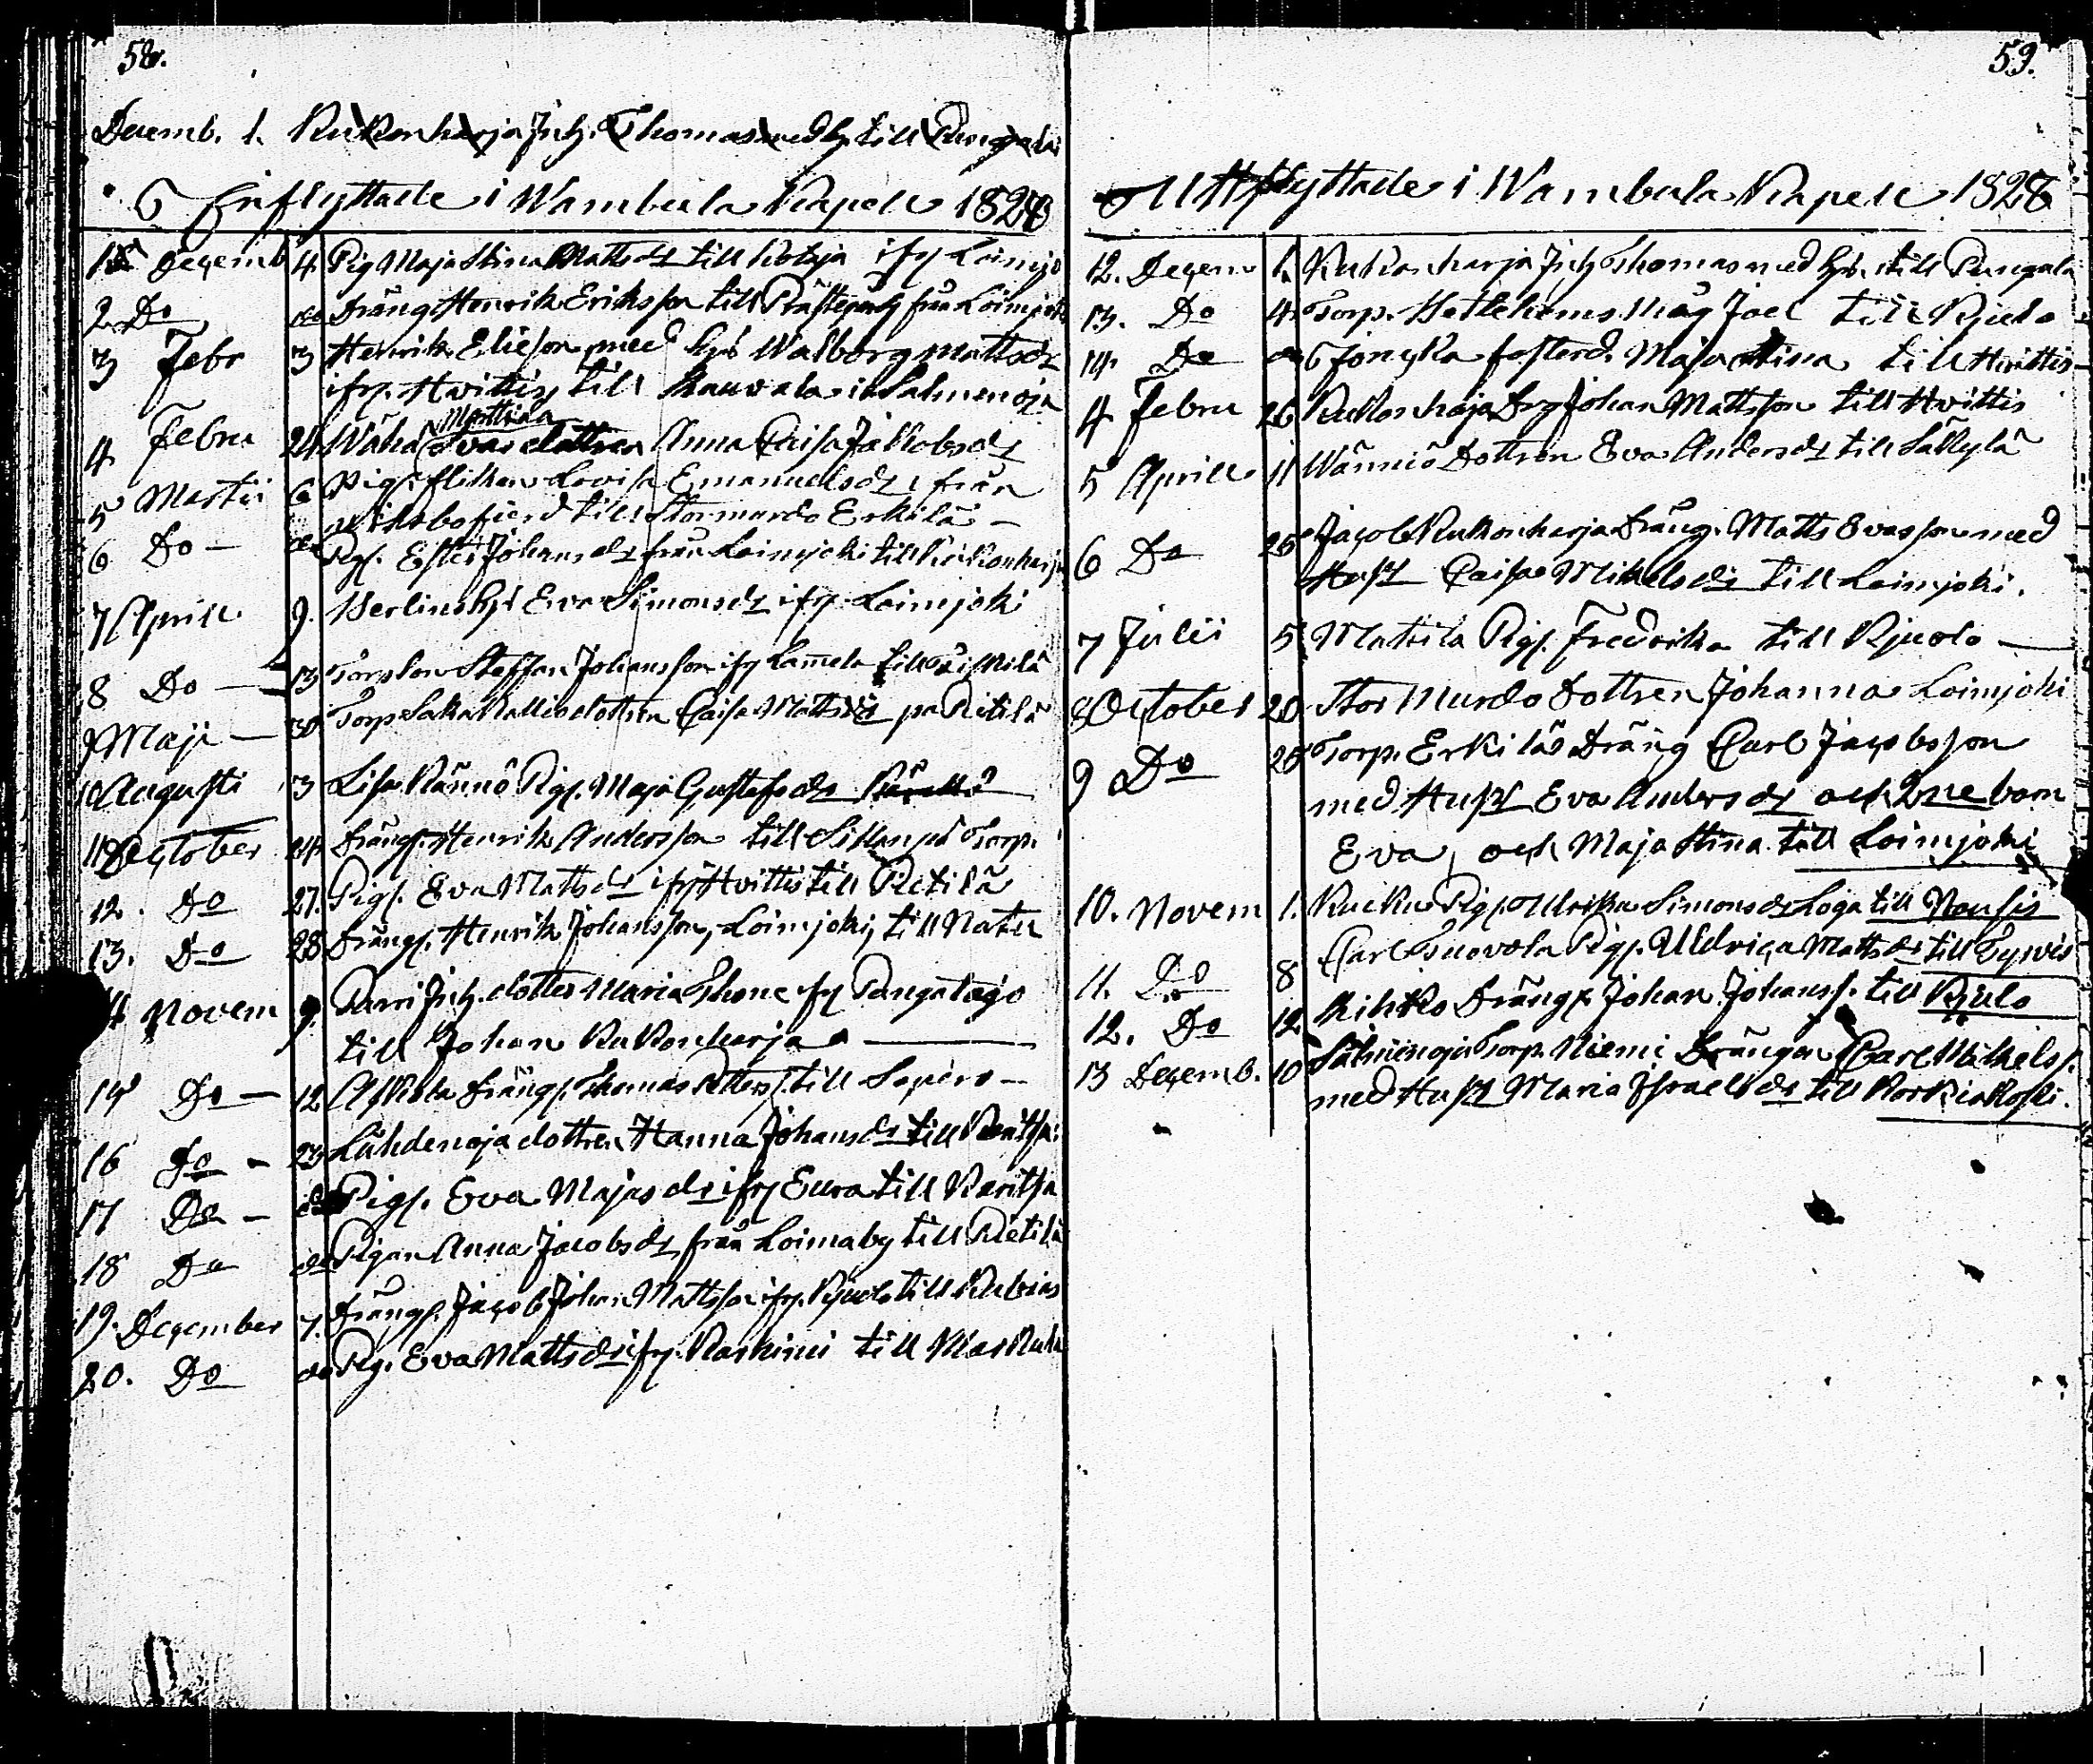 58.
Decemb. 1. Kukonharja Inh. Thomas med h. till Pungala
Inflyttade i Wambula Kapell 1828
1 Decemb 4. Pig Maja Stina Matts dr till Kotaja ifr Loimjo
2 Do do Dräng Henrik Eriksson till Prästegårds från Loimjoki
3 Febr 3 Henrik Elieson med hst Walborg Matts dr
ifr. Hvittis till Kauvala i Salmenoja
Mattila
4 Febru 24 Wähä dottren Anna Caisa Jakobs dr
5 Martii 6 Pigs flickan Lovisa Emanuels dr från
till Stormurdo Erkilä –
6 Do – do Pigs. Ester Johans dr från Loimjoki till Kukonharja
7 Aprill 9. Berlins hst Eva Simons dr ifr Loimjoki
8 Do — 13 Torp son Steffan Johansson ifr Lamela till
9 Maji — 30 Torp dottren Caisa Matts dr på Ritilä
10 Augusti 3 Lisa Kännö Pigs. Maja Gustafs dr
11 October 24 Drängs. Henrik Andersson till Torp.
12. Do 27. Pigs. Eva Matts dr ifr Hvittis till Rietilä
13. Do 28 Drängs. Henrik Johansson, Loimjoki, till Natu
14 Novem 9. Parri Inh. dotter Maria Thome fr Pungalaijo
till Johan Kukonharja —
14 Do — 12 Drängs. Thomas till Sepäro —
16 Do – 23 Lähdenoja dottren Hanna Johans dr till Karitsa
17 Do – do Pigs. Eva Majas dr ifr Eura till Karitsa
18 Do do Pigan Anna Jacobs dr från Loimaby till Rietilä
19. December 7. Drängs. Jacob Johan Mattsson ifr. Kjulo till
20. Do do Pig. Eva Matts dr ifr. till
59.
Utflyttade i Wambula Kapell 1828
12. Decem 1. Kukonharja Inh Thomas med hst. till Pungala
13. Do 4. Torp. måg Joel till Kjulo
14. Do do fosterd. Maja Stina till Hvittis –
4 Febru 26 Kukonharja Drg Johan Mattsson till Hvittis
5 Aprill 11 Wänniö Dottren Eva Anders dr till Säkylä
6 Do 25 Jacob Kukonharja Dräng. Matts Evasson med
Hust Caisa Mikels dr till Loimjoki.
7 Julii 5 Mattila Pigs. Fredrika till Kjuolo —
8 October 20 Stor Murdo Dottren Johanna Loimjoki
9 Do 28 Torp. Erkiläs Dräng Carl Jacobsson
med Hust Eva Anders dr och 2ne barn
Eva, och Maja Stina till Loimjoki
10. Novem 1. Kucku Pigs. Ulrika Simons dr Loga till Nousis
11. Do 8 Carl Pigs. Uldrica Matts dr till Tyrvis
12. Do 12 Kihko Drängs Johan Johanss. till Kjulo
13 Decemb. 10 Salmenoja Torp. Niemi Drängen Carl Mikelss.
med Hust Maria Israels dr till Korkiakoski.